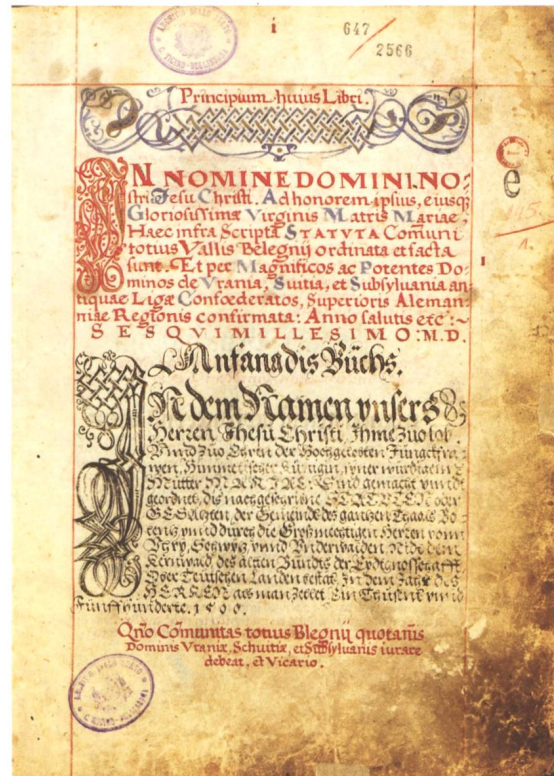 i
647
2566
Principium huius Libri.
IN NOMINE DOMINI NO:
stri Jesu Christi, Ad honorem ipsius, eiusq;
Gloriosissimæ Virginis Matris Mariae,
Haec infra Scripta STATVTA Comuni
totius Vallis Belegnij ordinata et facta
sunt. Et per Magnificos ac Potentes Do-
minos de Vrania, Suitia, et Subsylvania an-
tiquae Ligæ Confoederatos, Superioris Aleman-
niae Regionis confirmata: Anno salutis etc:~
SESQVIMILLESIMO: M.D.
Anfang dis Büchs.
In dem Namen vnsers
Herren Jhesu Christi, Jhme zuo lob,
Vnnd zuo Ehren der Hochgelobten Jungkfra-
wen, Himmelischer Künigin, syner würdigen
Mutter MARIAE: Sind gemacht vnnd
geordnet, dis nachgeschribne STATVTEN oder
GESAtzten, der Gemeind des gantzen Thaals Bo-
lentz vnnd durch die Großmechtigen Herren vonn
Vry, Schwytz, vnnd Vnderwalden, Nidt dem
Kernwald, des alten Bündts der Eydtgnosschafft
Ober Teutschen Landen bestät, In dem Jahr des
HERREN als man zellet Ein Thusent vnnd
Fünffhunderte. 1500.
Qño Com̃unitas totius Blegnij quotañis
Dominis Vraniæ, Schuitiæ, et Subsylvanis iurare
debeat, et Vicario.